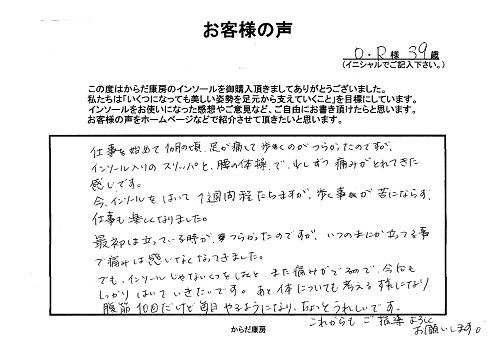 お客様の声
O・R 様 39歳
(イニシャルでご記入下さい。)
この度はからだ康房のインソールを御購入頂きましてありがとうございました。
私たちは「いくつになっても美しい姿勢を足元から支えていくこと」を目標にしています。
インソールをお使いになった感想やご意見など、ご自由にお書き頂けたらと思います。
お客様の声をホームページなどで紹介させて頂きたいと思います。
仕事を始めて 10月の頃、足が痛くて歩くのがつらかったのですが、
インソール入りのスリッパと、腰の体操で、少しずつ痛みがとれてきた
感じです。
今、インソールをはいて1週間程たちますが、歩く事が苦にならず、
仕事も楽しくなりました。
最初は立っている時がつらかったのですが、いつのまにか立ってる事
で痛みは感じなくなってきました。
でも、インソールじゃないくつをはくと、また痛みがでるので、今後も
しっかりはいていきたいです。あと、体についても考える様になり
腹筋10回だけど毎日やるようになり、ちょっとうれしいです。
これからもご指導よろしく
お願いします。
からだ康房